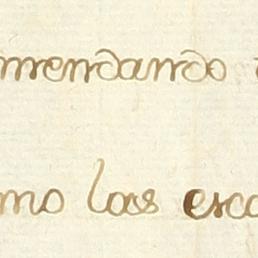 mendando
mo los esca